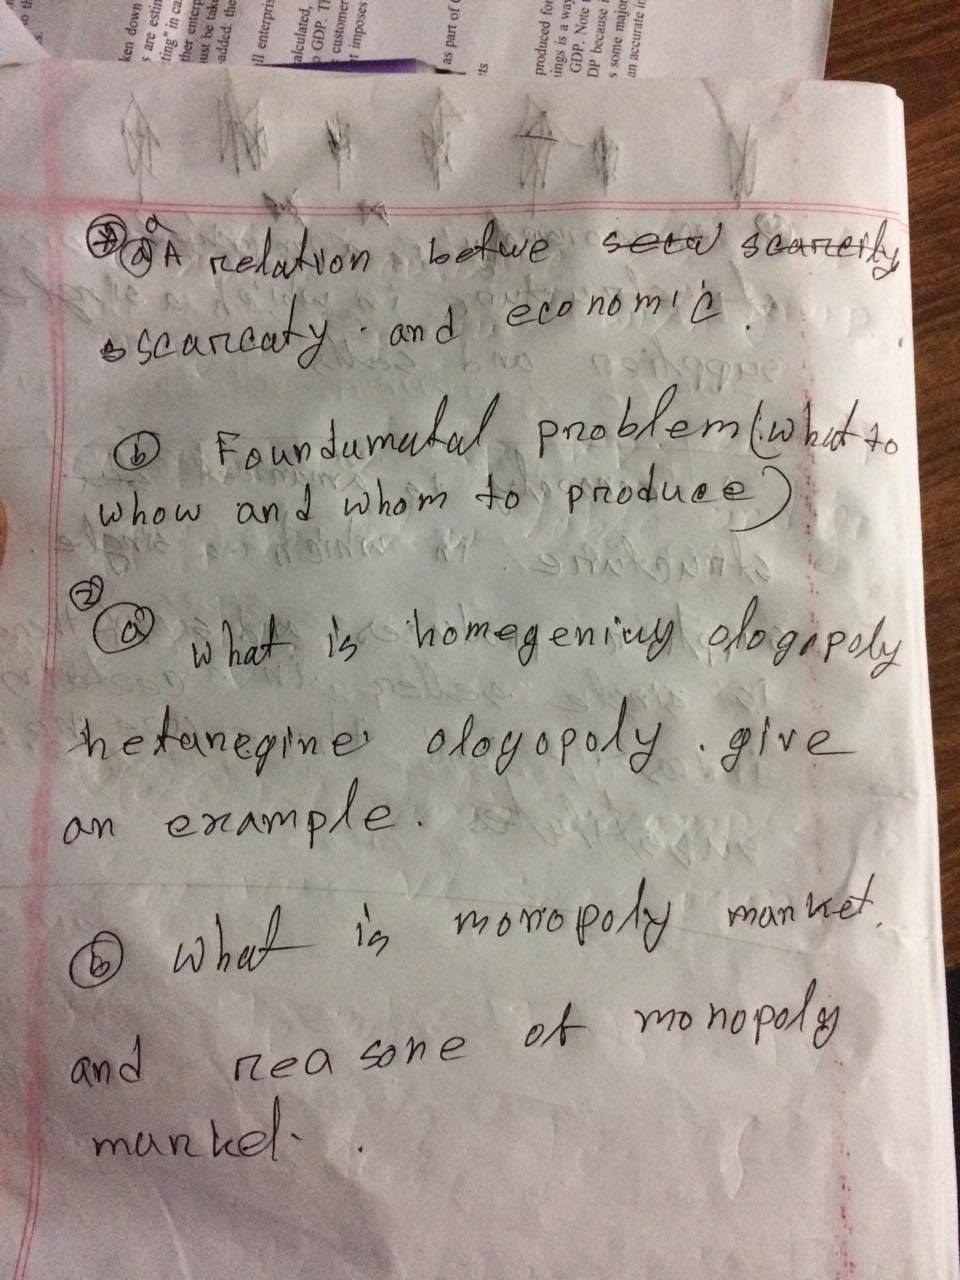 ken down
s are estin
ting" in ca
ther enterp
ust be take
added: the
ll enterpris
alculated,
GDP. Th
customer
t imposes
as part of
ts
produced for
ings is a way
GDP. Note
DP because i
s some major
an accurate in
a
(a) A relation betwe scarcerly
scarcaty. and economic.
(b) Foundumatal problem (what to
whow and whom to produce)
(2)
(a) what is homegeniuy ologopoly
hetanegine ologopoly. give
an example.
(b) what is monopoly market.
and reasone of monopoly
market.